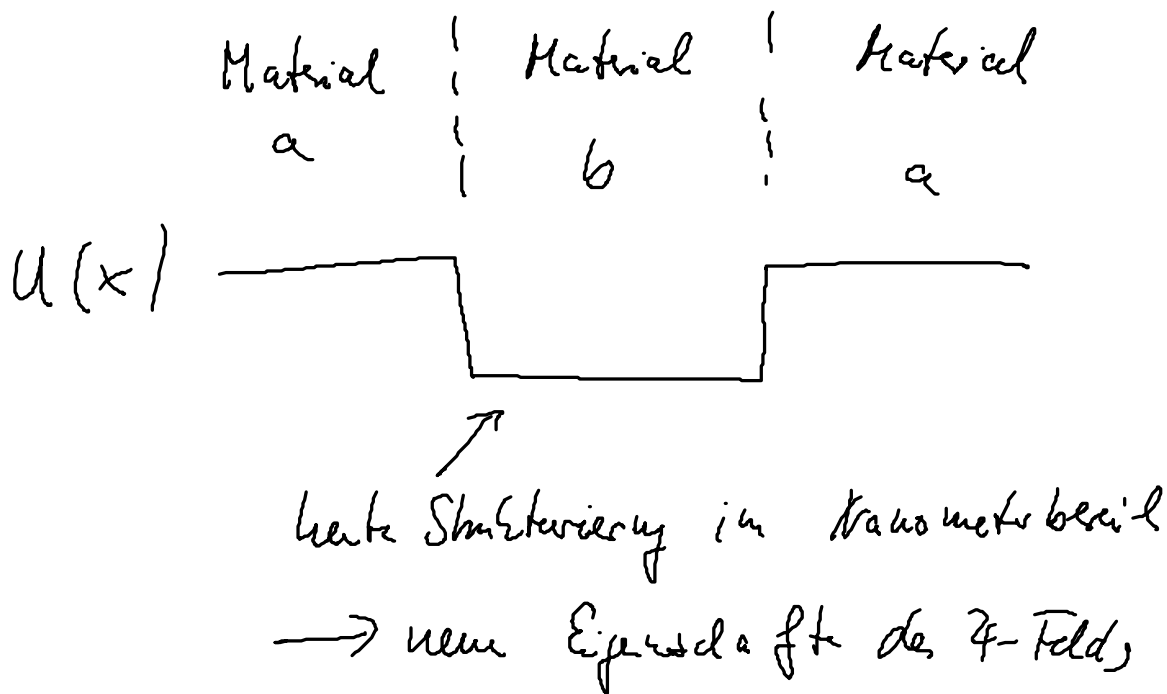 Material Material Material
a b a
U(x)
heute Strukturierung im Nanometerbereich
→ neue Eigenschaften des ψ-Felds